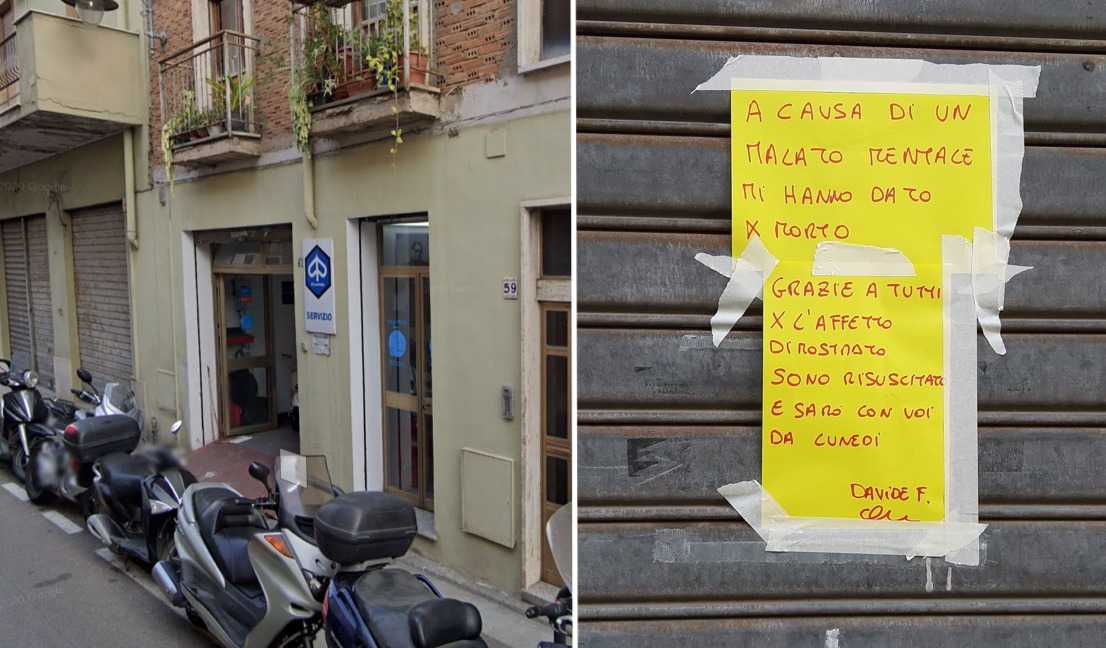 SERVIZIO
59
A CAUSA DI UN
MALATO MENTALE
MI HANNO DATO
X MORTO
GRAZIE A TUTTI
X L'AFFETTO
DIMOSTRATO
SONO RISUSCITATO
E SARO CON VOI
DA LUNEDI
DAVIDE F.